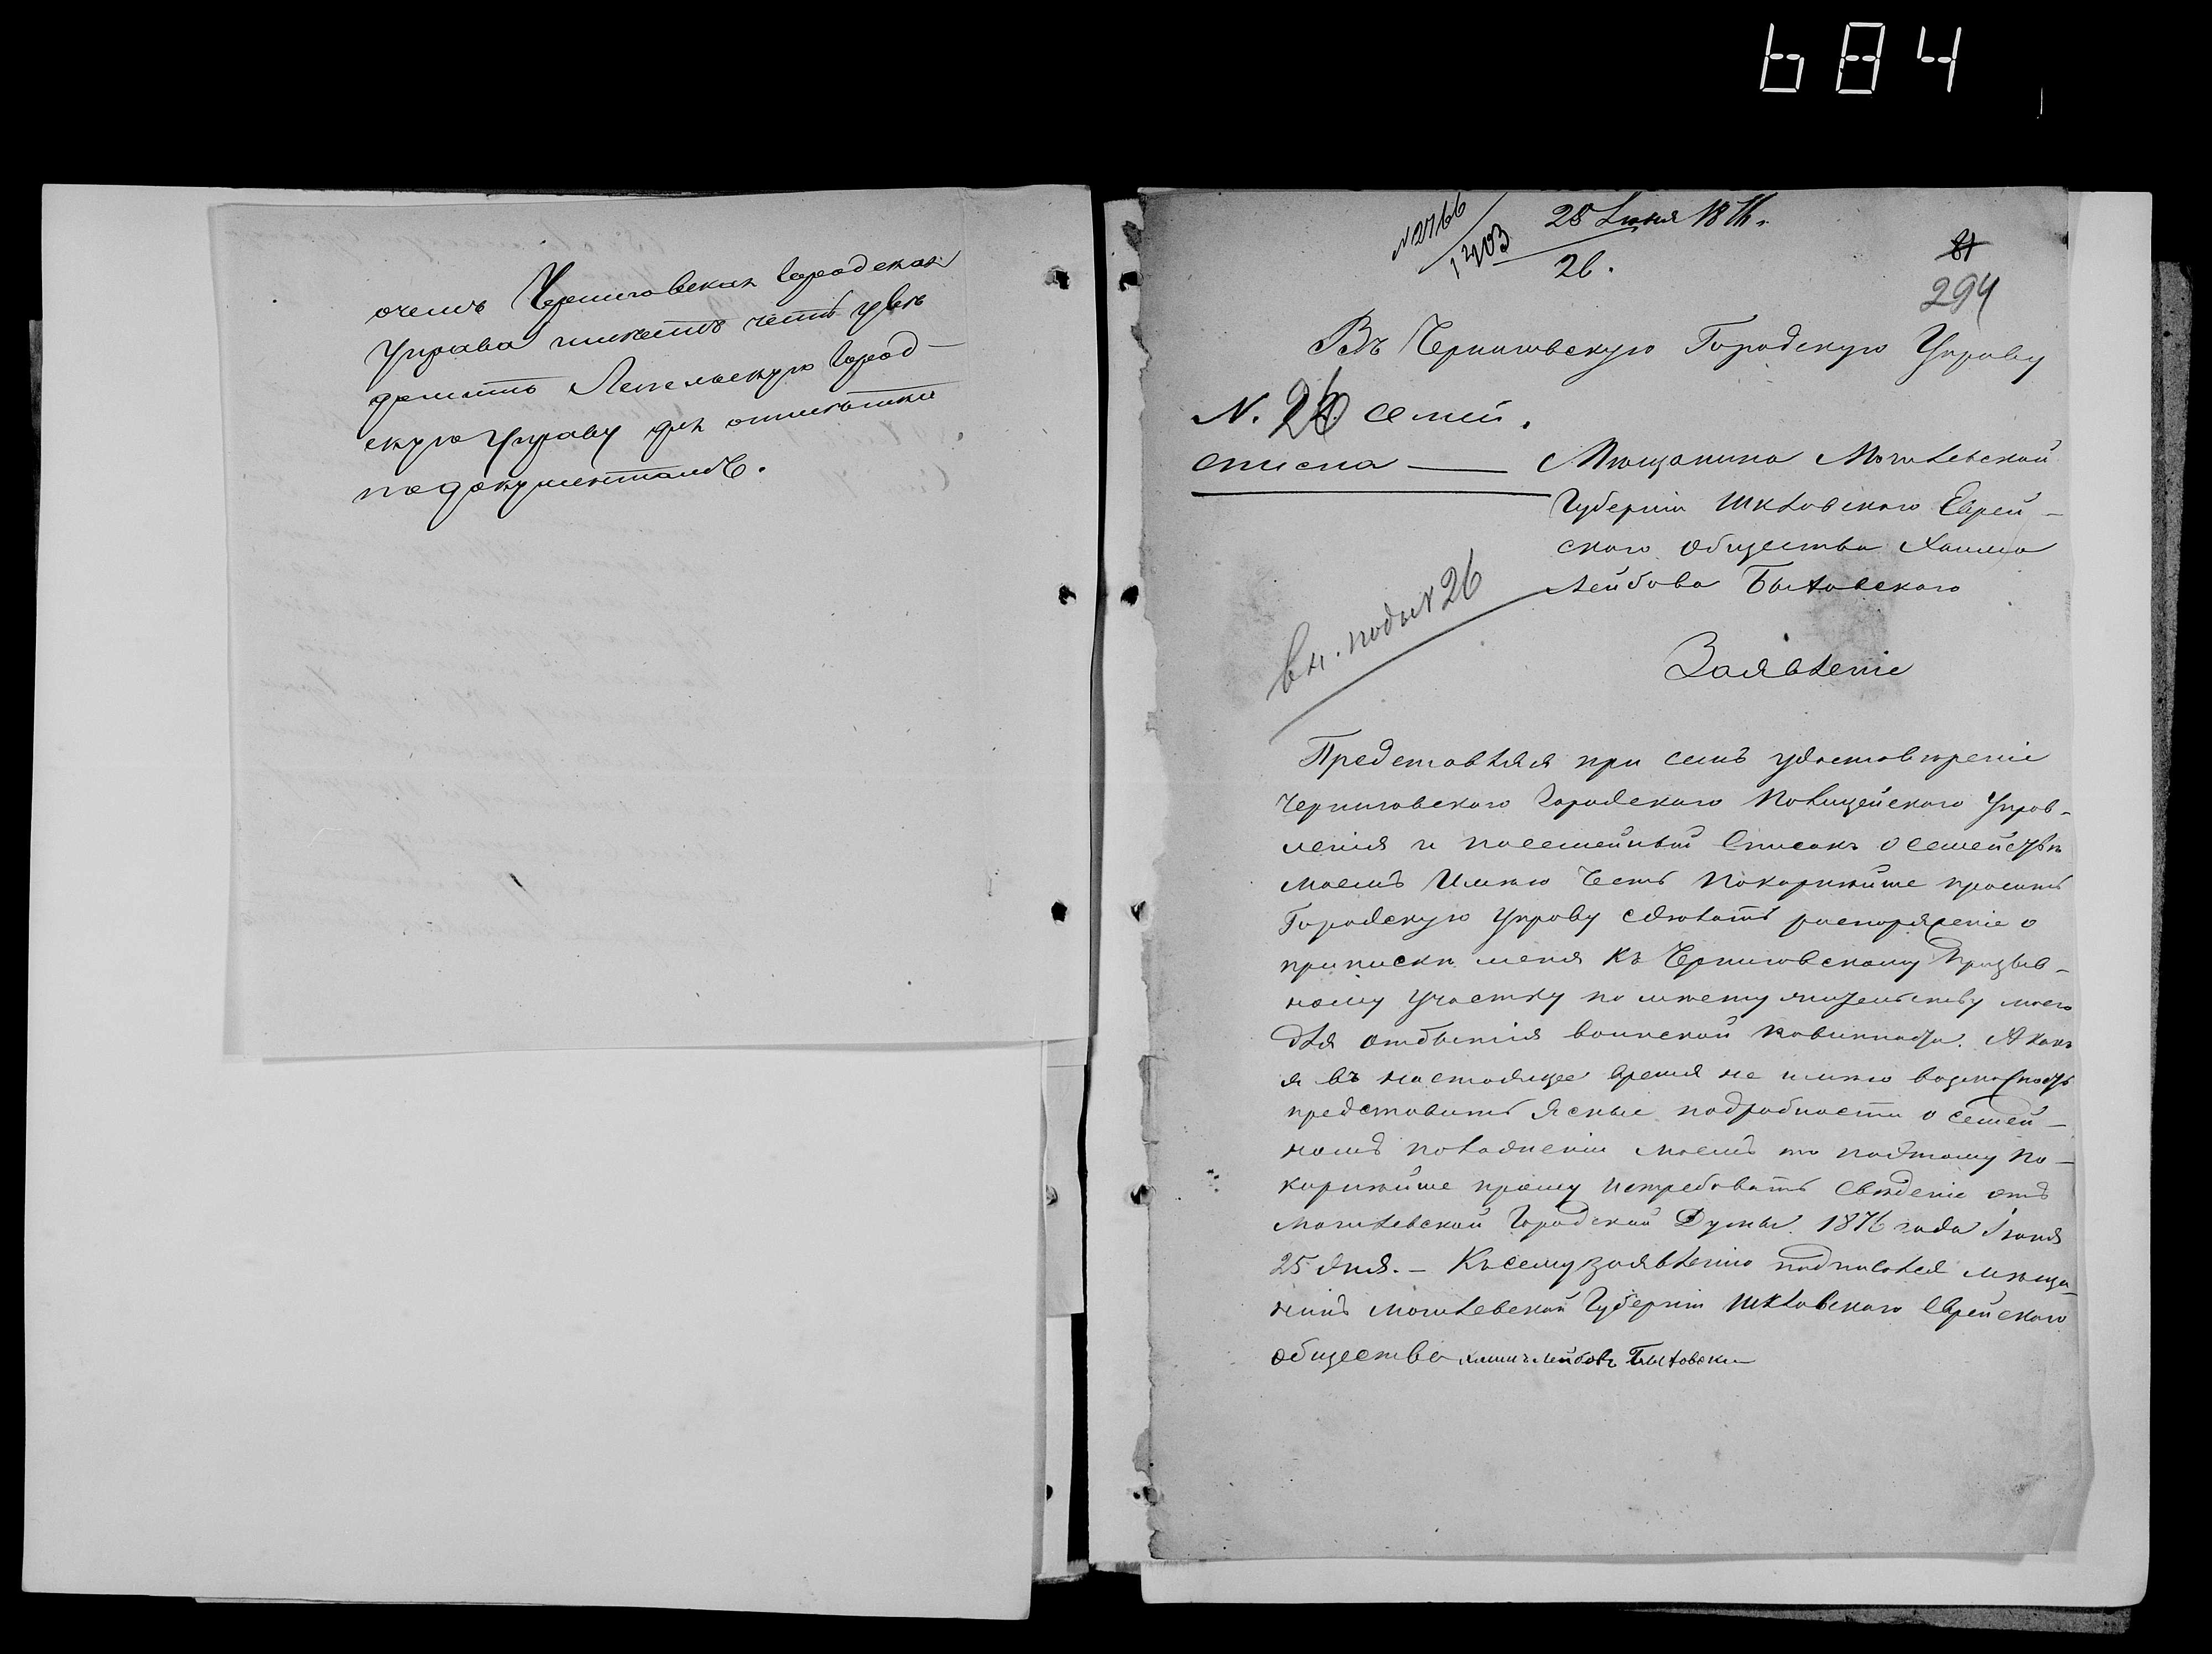 684
очемъ Черниговская Городская
Управа имѣетъ честь увѣ
домить Лепельскую Город-
скую Управу для отмѣтки
по документамъ.
№ 2766
1403
25 Іюня 1876 г.
26.
81
294
Въ Черниговскую Городскую Управу
N. 26 семей.
списка
Мѣщанина Могилевской
Губерніи Шкловскаго Еврей-
скаго Общества Хаима
Лейбова Быховскаго
вн. подъ № 26
Заявленіе
Представляя при семъ удостовѣреніе
Черниговскаго Городскаго Полицейскаго Управ-
ленія и посемейный Списокъ о семействѣ
моемъ Имѣю Честь Покорнѣйше просить
Городскую Управу сдѣлать распоряженіе о
приписки меня Къ Черниговскому Призыв-
ному Участку по мѣсту жительству моего
для отбытія воинской повинности. А какъ
я въ настоящее время не имѣю возможность
представить ясные подробности о семей-
номъ положеніи моемъ то поэтому по-
корнѣйше прошу истребовать Свѣденіе отъ
Могилевской Городской Думы. 1876 года Іюня
25 дня. - Къ сему заявленію подписался мѣща-
нинъ Могилевской Губерніи Шкловскаго Еврейскаго
Общества Хаимъ Лейбовъ Быховски